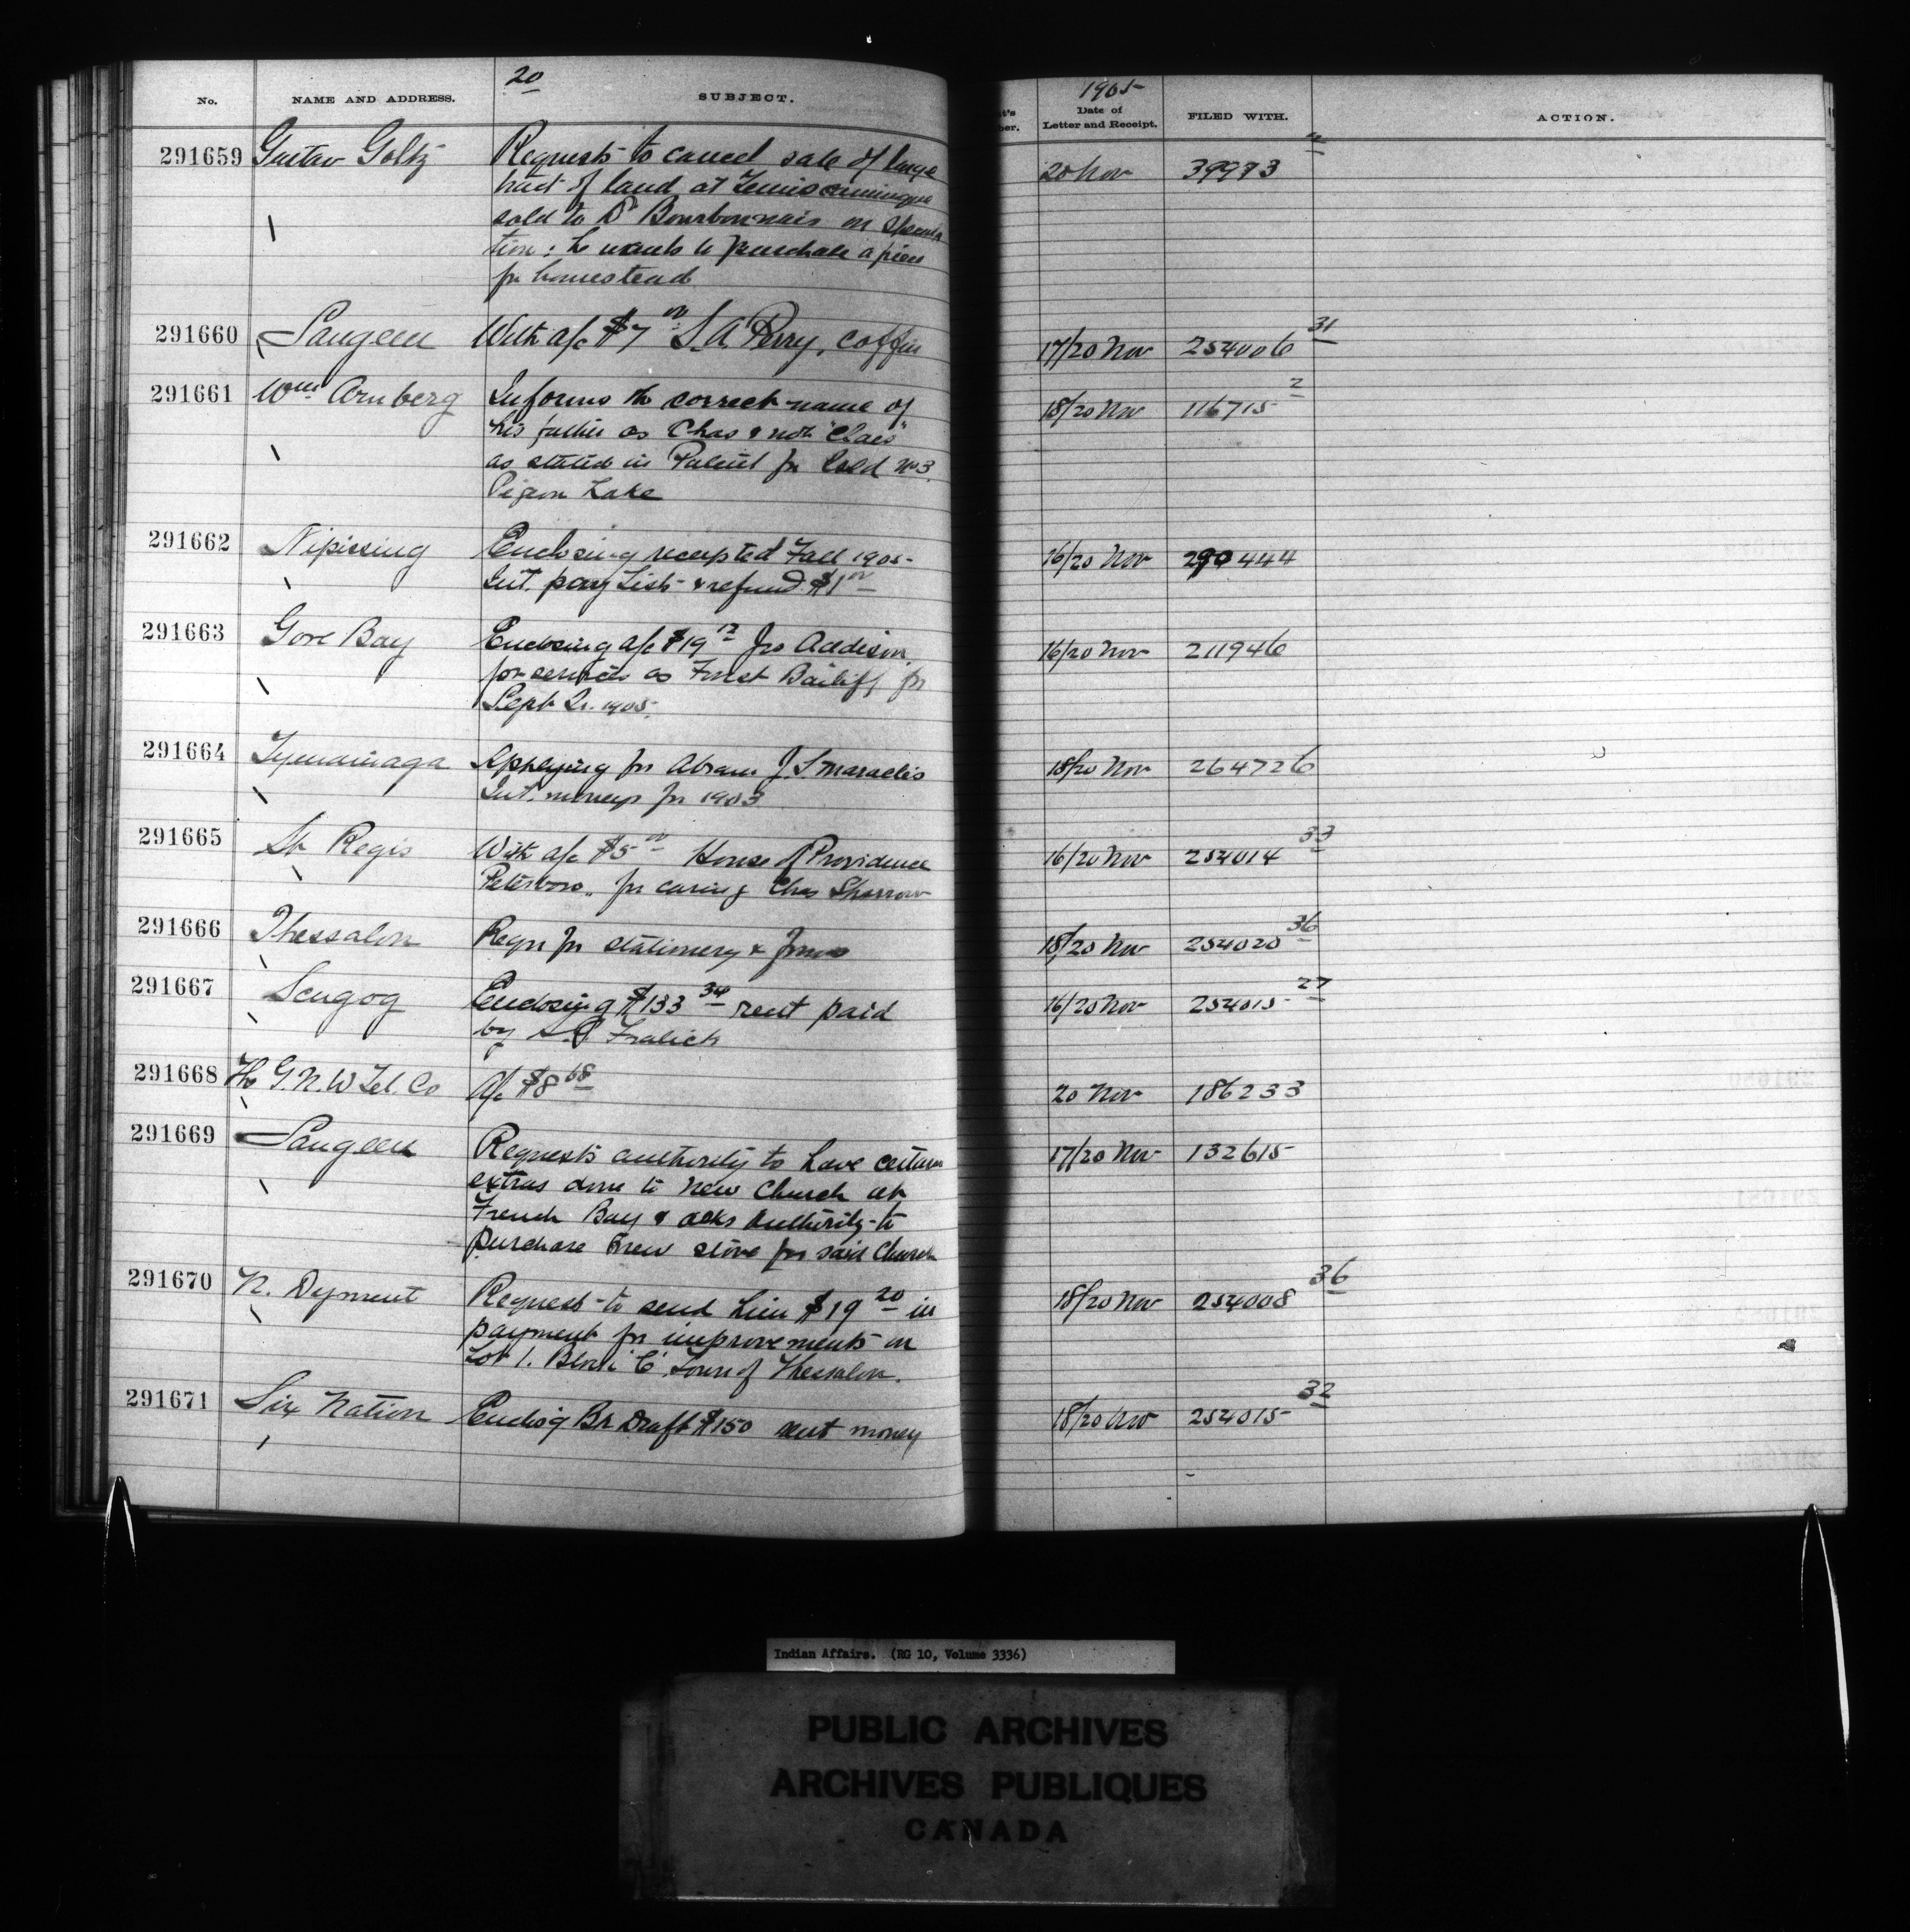 20
No. NAME AND ADDRESS. SUBJECT.
1905
Date of
Letter and Receipt. FILED WITH. ACTION.
291659 Gustav Goltz Requests to cancel sale of large 20 Nov 39973
tract of land at Temiscamingue
sold to P Bourbonnais on specula
tion: he wants to purchase a piece
for homestead
291660 Saugeen With a/c $7 00 S. A. Perry, coffin 17/20 Nov 254006 31
291661 Wm Arnberg Informs the correct name of 18/20 Nov 116715 2
his father as Chas & not "Claes"
as stated in Patent for Isld No 3
Pigeon Lake
291662 Nipissing Enclosing receipted Fall 1905 16/20 Nov 290444
Int. pay List & refund $1 00
291663 Gore Bay Enclosing a/c $19 12 Jno Addison 16/20 Nov 211946
for services as Forest Bailiff for
Sept Qr. 1905.
291664 Tyendinaga Applying for Abram J. S. Maracles 18/20 Nov 264726
Int. moneys for 1903
291665 St Regis With a/c $5 00 House of Providence 16/20 Nov 254014 33
Peterboro, for caring Chas Sharrow
291666 Thessalon Reqn for stationery & forms 18/20 Nov 254020 36
291667 Scugog Enclosing $133 34 rent paid 16/20 Nov 254015 27
by Fralick
291668 The G. N. W Tel. Co a/c $8 68 20 Nov 186233
291669 Saugeen Requests authority to have certain 17/20 Nov 132615
extras done to New Church at
French Bay & asks authority to
purchase new stove for said Church
291670 N. Dyment Request to send him $19 20 in 18/20 Nov 254008 36
payment for improvements on
Lot 1. Block 'C' Town of Thessalon.
291671 Six Nation Enclos'g Bk Draft $150 rent money 18/20 Nov 254015 32
Indian Affairs. (RG 10, Volume 3336)
PUBLIC ARCHIVES
ARCHIVES PUBLIQUES
CANADA